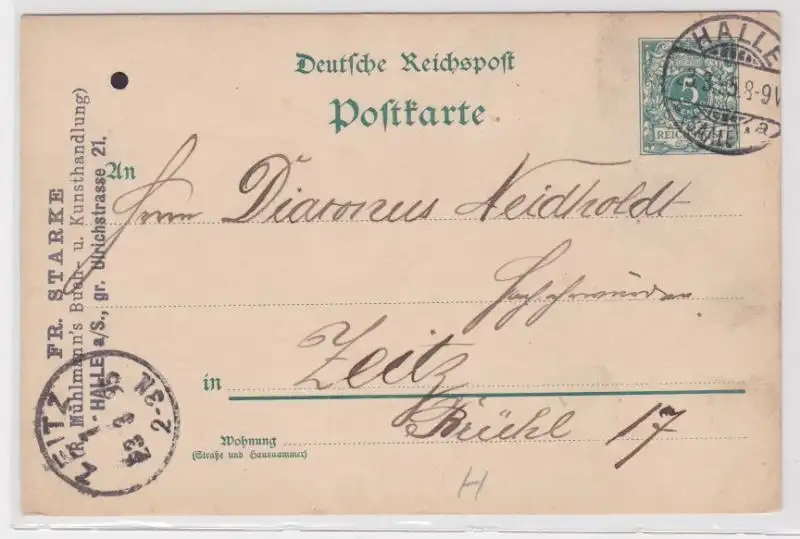 Deutsche Reichspost
Postkarte
HALLE
8-9V
a
5
An
Herrn Diaconus Neidholdt
Hochehrwürden
in Zeitz
Brühl 17
Wohnung
(Straße und Hausnummer)
FR. STARKE
(R. Mühlmann's Buch- u. Kunsthandlung)
HALLE a/S., gr. Ulrichstrasse 21.
ZEITZ
2-3N
H